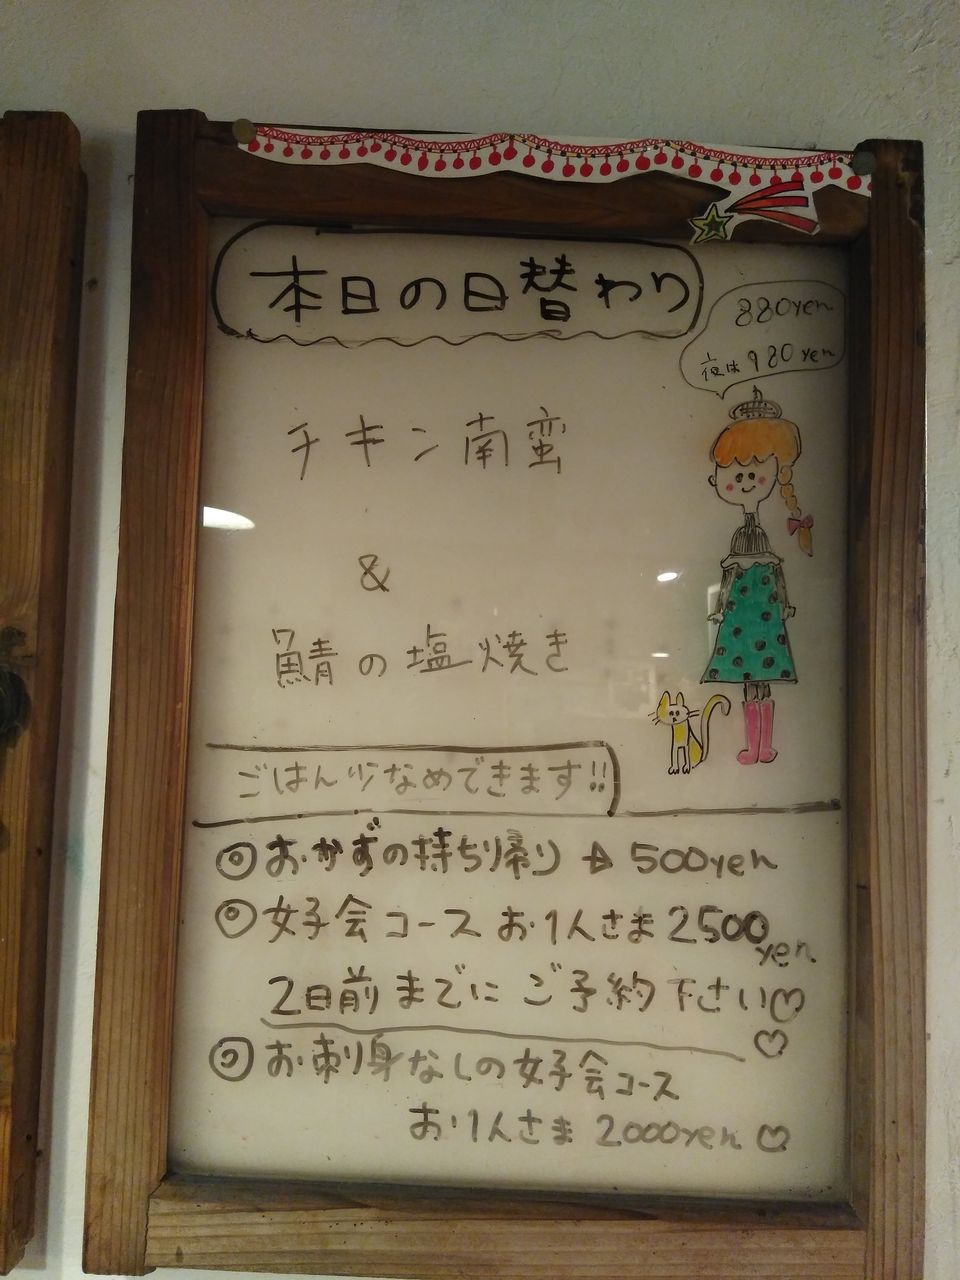 本日の日替わり
880yen
夜は980yen
チキン南蛮
&
鯖の塩焼き
ごはん少なめできます!!
◎おかずの持ち帰り→500yen
◎女子会コースお1人さま2500yen
2日前までにご予約下さい♡
♡
◎お刺身なしの女子会コース
お1人さま2000yen♡